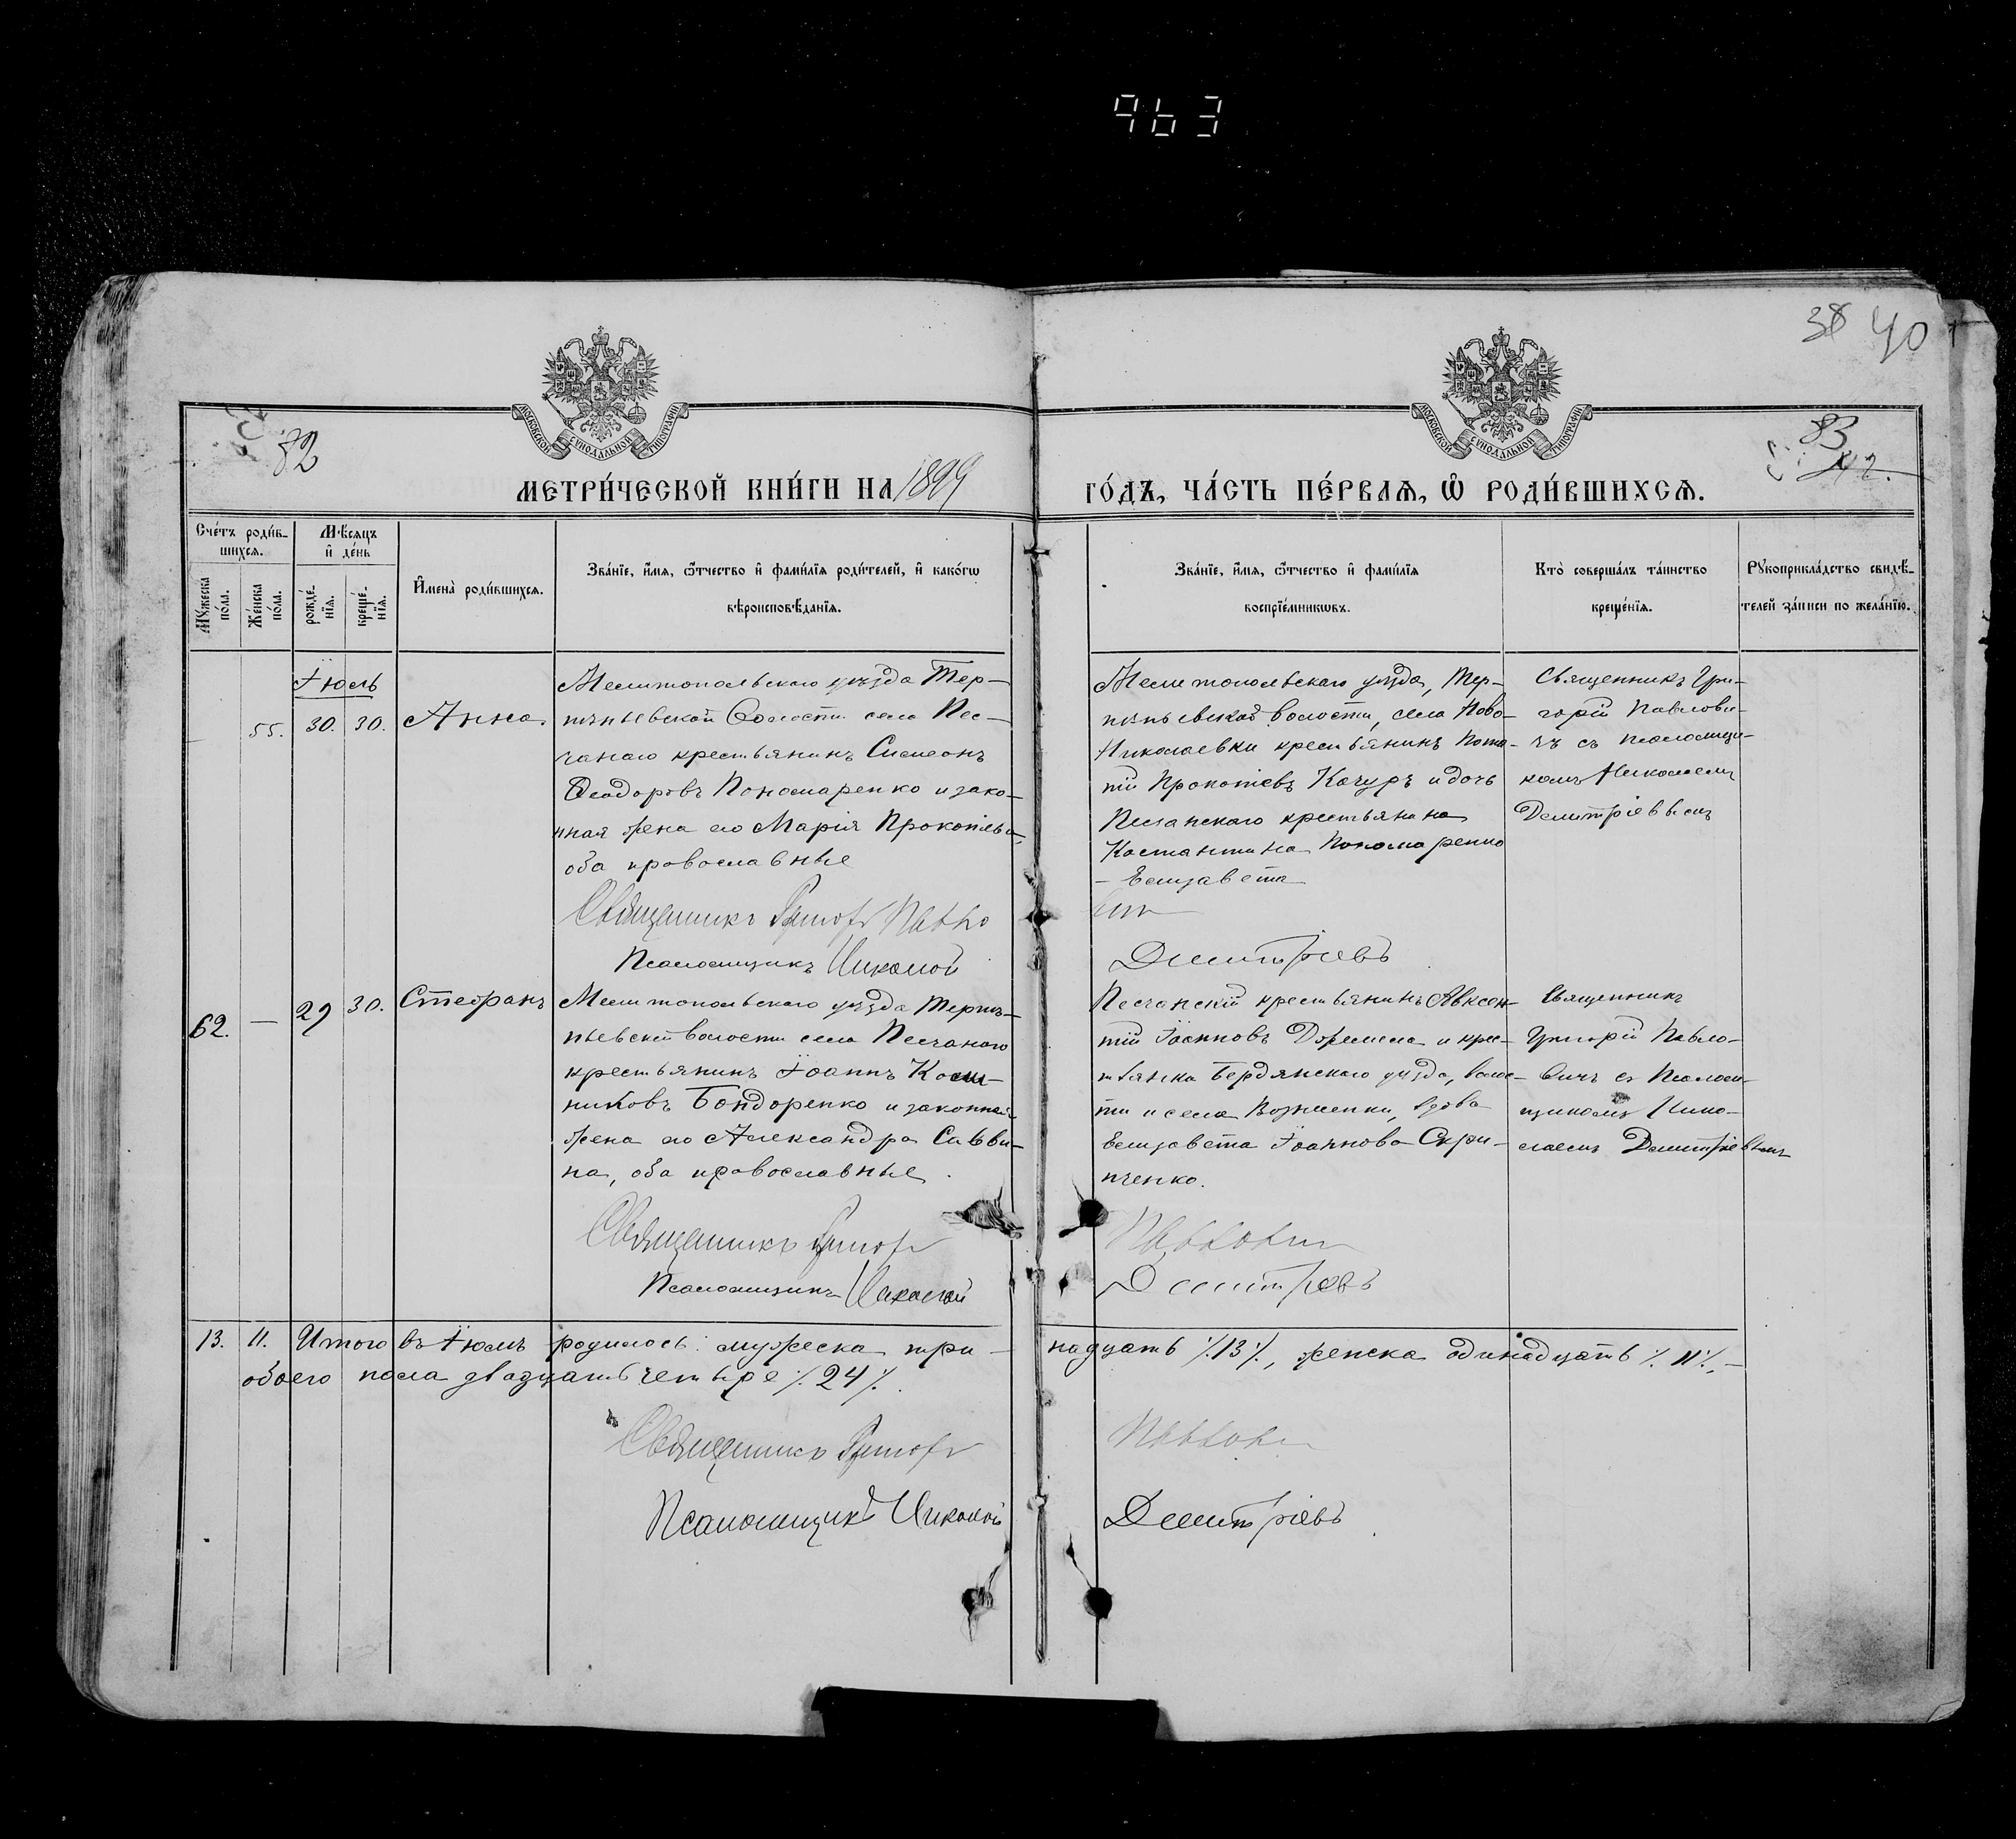 963
38 40
82
83
МОСКОВСКОЙ СѴНОДАЛЬНОЙ ТИПОГРАФІИ
МОСКОВСКОЙ СѴНОДАЛЬНОЙ ТИПОГРАФІИ
МЕТРИ́ЧЕСКОЙ КНИ́ГИ НА 1899
ГО́ДЪ, ЧА́СТЬ ПЕ́РВАЯ, Ѡ҆ РОДИ́ВШИХСЯ.
Сче́тъ роди́в-
шихся.
Мꙋ́жеска по́ла.
Же́нска по́ла.
Мѣ́сяцъ и҆ де́нь
рожде́-нїя.
креще́-нїя.
И҆мена̀ роди́вшихся.
Зва́нїе, и҆́мя, ѻ҆́тчество и҆ фами́лїя роди́телей, и҆ како́гѡ
вѣроисповѣ́данїя.
Зва́нїе, и҆́мя, ѻ҆́тчество и҆ фами́лїя
воспрїе́мникѡвъ.
Кто̀ соверша́лъ та́инство
креще́нїя.
Рꙋкоприкла́дство свидѣ́-
телей за́писи по жела́нїю.
Іюль
55. 30. 30. Анна.
Мелитопольскаго уѣзда Тер-
пѣньевской волости села Пес-
чанаго крестьянинъ Симеонъ
Ѳеодоровъ Пономаренко и зако-
нная жена его Марія Прокопіева,
оба православные
Священникъ Григорій Павло
Псаломщикъ Николай
Мелитопольскаго уѣзда, Тер-
пѣньевской волости, села Ново-
Николаевки крестьянинъ Пота-
пій Прокопіевъ Качуръ и дочь
Песчанскаго крестьянина
Костантина Пономаренко
- Елизавета
вич
Димитріевъ
Священникъ Гри-
горій Павлови-
чъ съ псаломщи-
комъ Николаемъ
Димитріеввымъ
62. — 29 30. Стефанъ
Мелитопольскаго уѣзда Терпѣ-
ньевской волости села Песчанаго
крестьянинъ Іоаннъ Косьм-
никовъ Бондоренко и законная
жена его Александра Савви-
на, оба православные.
Священникъ Григорій
Псаломщикъ Николай
Песчанскій крестьянинъ Авксен-
тій Іоанновъ и крес-
тьянка Бердянскаго уѣзда, волос-
ти и села вдова
Елизавета Іоаннова Скри-
пченко.
Павлович
Димитріевъ
Священникъ
Григорій Павло-
вичъ съ Псалом-
щикомъ Нико-
лаемъ Димитріевымъ
13. 11. Итого въ Іюлѣ родилось: мужеска три-
надцать ٪13٪, женска одинадцать ٪11٪, -
обоего пола двадцать четыре ٪24٪.
Священникъ Григорій
Павлович
Псаломщикъ Николай
Димитріевъ